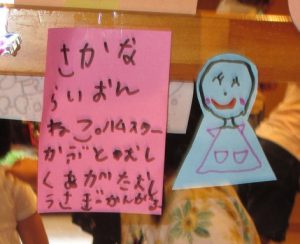 さかな
らいおん
ねこ。ハムスター
かぶとむし
くわがたむし
うさぎ